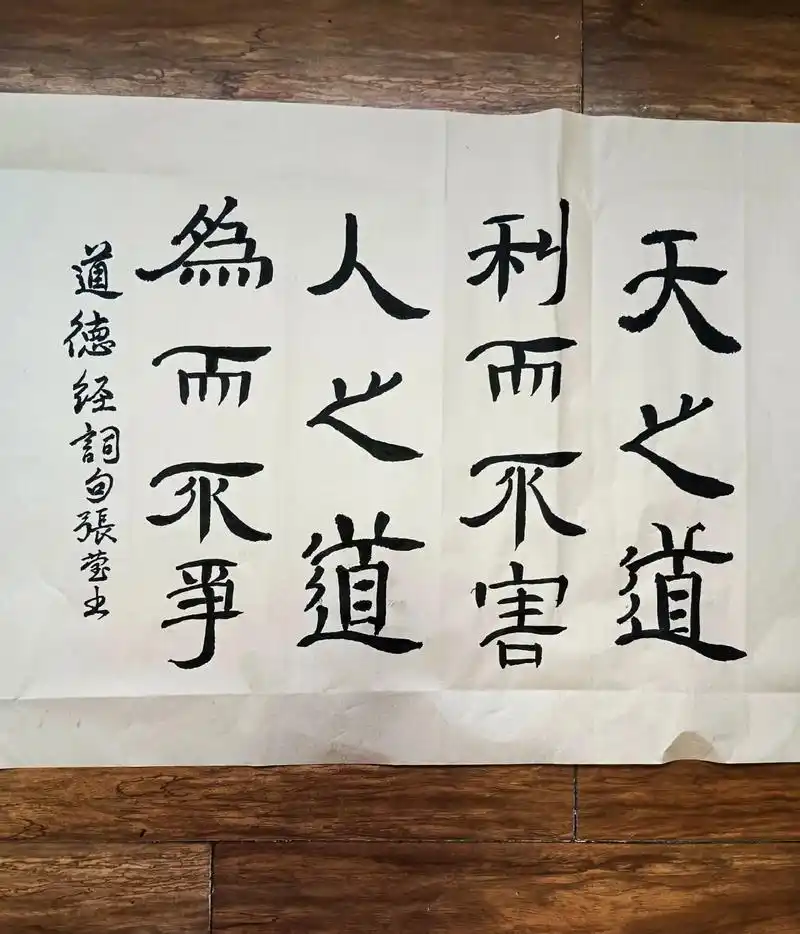 天之道
利而不害
人之道
為而不爭
道德经詞句張莹书